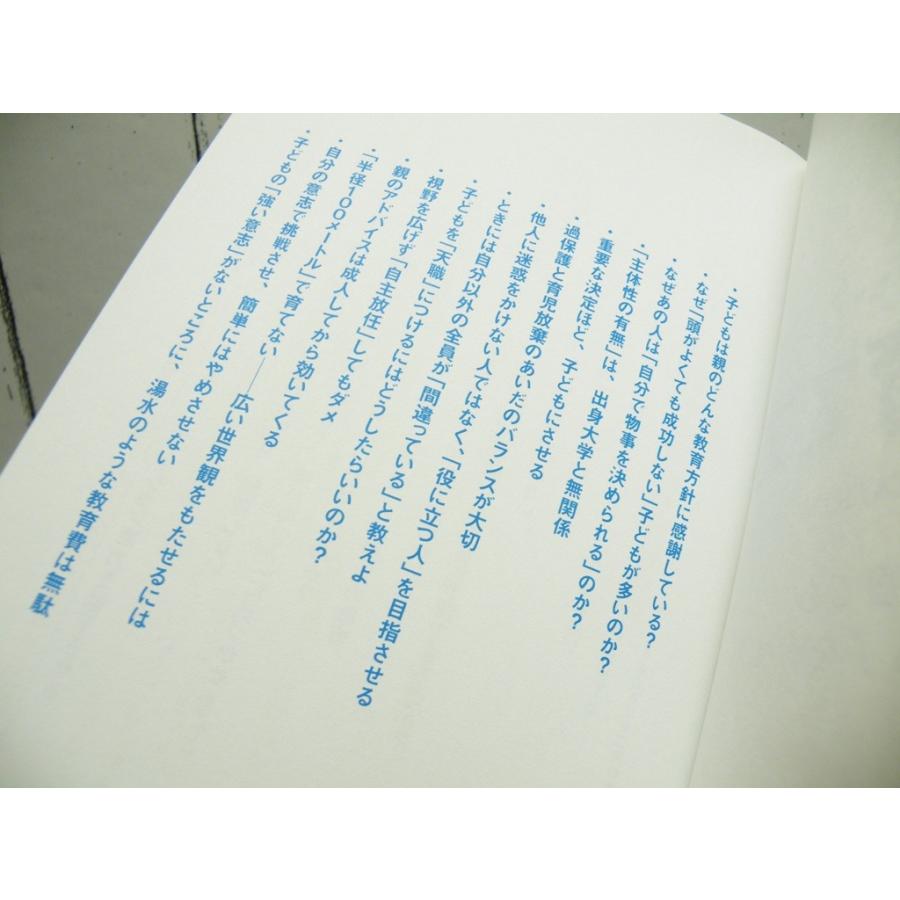 ・子どもは親のどんな教育方針に感謝している？
・なぜ「頭がよくても成功しない」子どもが多いのか？
・なぜあの人は「自分で物事を決められる」のか？
・「主体性の有無」は、出身大学と無関係
・重要な決定ほど、子どもにさせる
・過保護と育児放棄のあいだのバランスが大切
・他人に迷惑をかけない人ではなく、「役に立つ人」を目指させる
・ときには自分以外の全員が「間違っている」と教えよ
・子どもを「天職」につけるにはどうしたらいいのか？
・視野を広げず「自主放任」してもダメ
・親のアドバイスは成人してから効いてくる
・「半径100メートル」で育てない――広い世界観をもたせるには
・自分の意志で挑戦させ、簡単にはやめさせない
・子どもの「強い意志」がないところに、湯水のような教育費は無駄